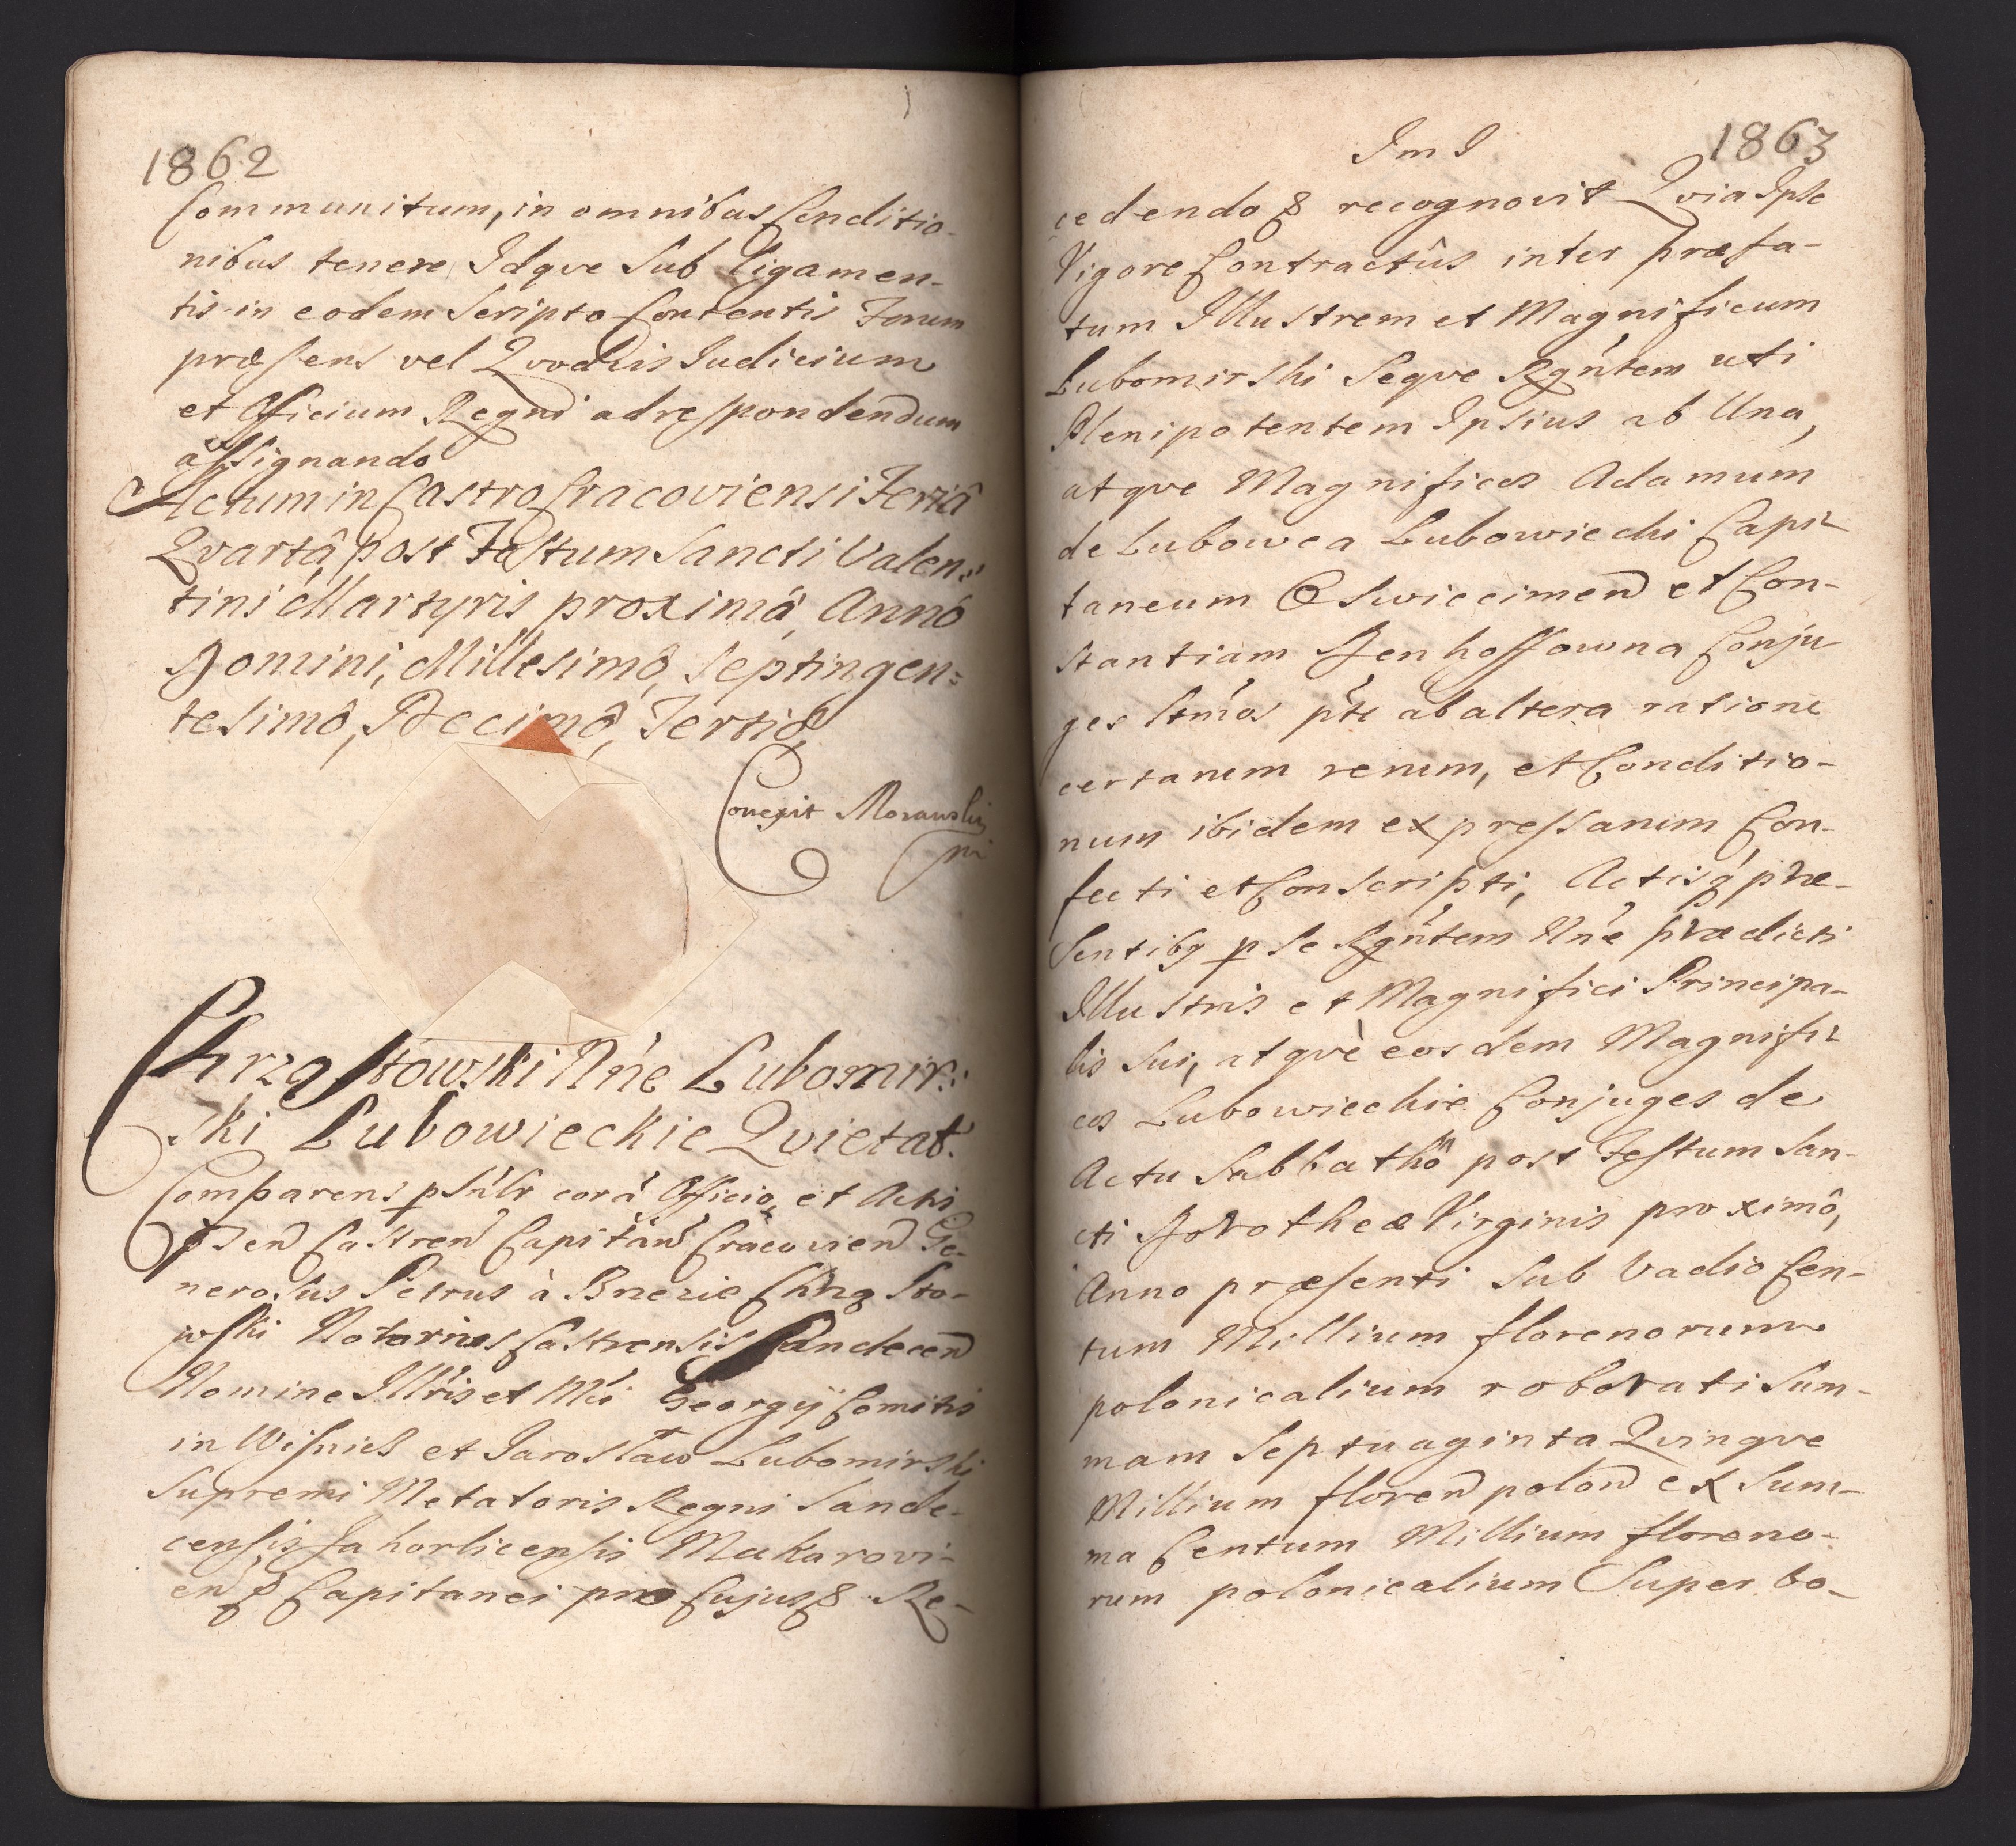 1862
Communitum, in omnibus Conditio-
nibus tenere, Idqve Sub ligamen-
tis in eodem Scripto Contentis Forum
præsens vel Qvodvis Iudicium
et Officium Regni ad respondendum
assignando
Actum in Castro Cracoviensi Feriâ
Qvartâ post Festum Sancti Valen:
tini Martyris proximâ, Annô
Domini, Millesimô, Septingen:
tesimô, Decimô, Tertiô,
Correxit Morawski
mp
Chrząstowski Nne Lubomir:
ski Lubowieckie Qvietat.
Comparens pSnlr corã Officio, et Actis
pnsen Castren Capitan Cracovien Ge-
nerosus Petrus à Brzezie Chrząsto-
wski Notarius Castrensis Sandecen
Nomine Illris et Mci Georgij Comitis
in Wisnicz et Jarosław Lubomirski
Supremi Metatoris Regni Sande-
censis Jahorlicensis Makarovi-
en & Capitanei pro Cujus & Re-
ImI
1863
cedendo & recognovit Qvia Ipse
Vigore Contractûs inter præfa-
tum Illustrem et Magnificum
Lubomirski Seqve Rgntem uti
Plenipotentem Ipsius ab Una,
atqve Magnificos Adamum
de Lubowca Lubowiecki Capi-
taneum Oswiecimen et Con-
stantiam Denhoffowna Conju
ges ltmos pte ab altera ratione
certarum rerum, et Conditio-
num ibidem expressarum Con-
fecti et Conscripti, Actisq præ-
sentibq p Se Rgntem Nne prædicti
Illustris et Magnifici Principa-
lis Sui, atqvè eosdem Magnifi-
cos Lubowieckie Conjuges de
Actu Sabbathô post Festum San-
cti Dorotheæ Virginis proximô,
Anno præsenti Sub Vadio Cen-
tum Millium florenorum
polonicalium roborati Sum-
mam Septuaginta Qvinqve
Millium floren polon ex Sum-
ma Centum Millium floreno-
rum polonicalium Super bo-